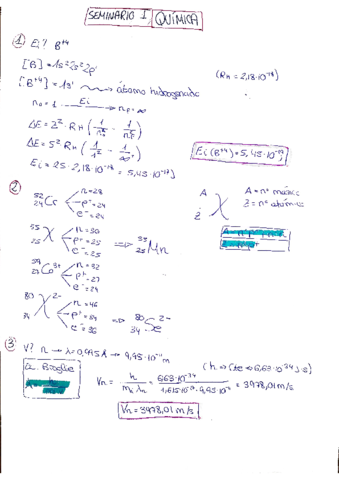 SEMINARIO I QUÍMICA
① Ei? B⁺⁴
[B] = 1s²2s²2p¹
(RH = 2,18·10⁻¹⁸)
[B⁺⁴] = 1s¹ → átomo hidrogenoide
n₀ = 1 Ei → nF = ∞
ΔE = Z² · RH (1/n₁² - 1/nF²)
ΔE = 5² RH (1/1² - 1/∞²)
Ei = 25 · 2,18·10⁻¹⁸ = 5,45·10⁻¹⁷ J
Ei (B⁺⁴) = 5,45·10⁻¹⁷ J
②
52 24 Cr n = 28 p⁺ = 24 e⁻ = 24
A Z X A = nº másico
Z = nº atómico
55 25 X n = 30 p⁺ = 25 e⁻ = 25 ⟹ 55 25 Mn
59 27 Co³⁺ n = 32 p⁺ = 27 e⁻ = 24
80 34 X²⁻ n = 46 p⁺ = 34 e⁻ = 36 ⟹ 80 34 Se²⁻
③ V? n → λ = 0,995 Å → 9,95·10⁻¹¹ m
(h → Cte → 6,63·10⁻³⁴ J·s)
De Broglie
Vn = h / mn λn = 6,63·10⁻³⁴ = 3978,01 m/s
Vn = 3978,01 m/s